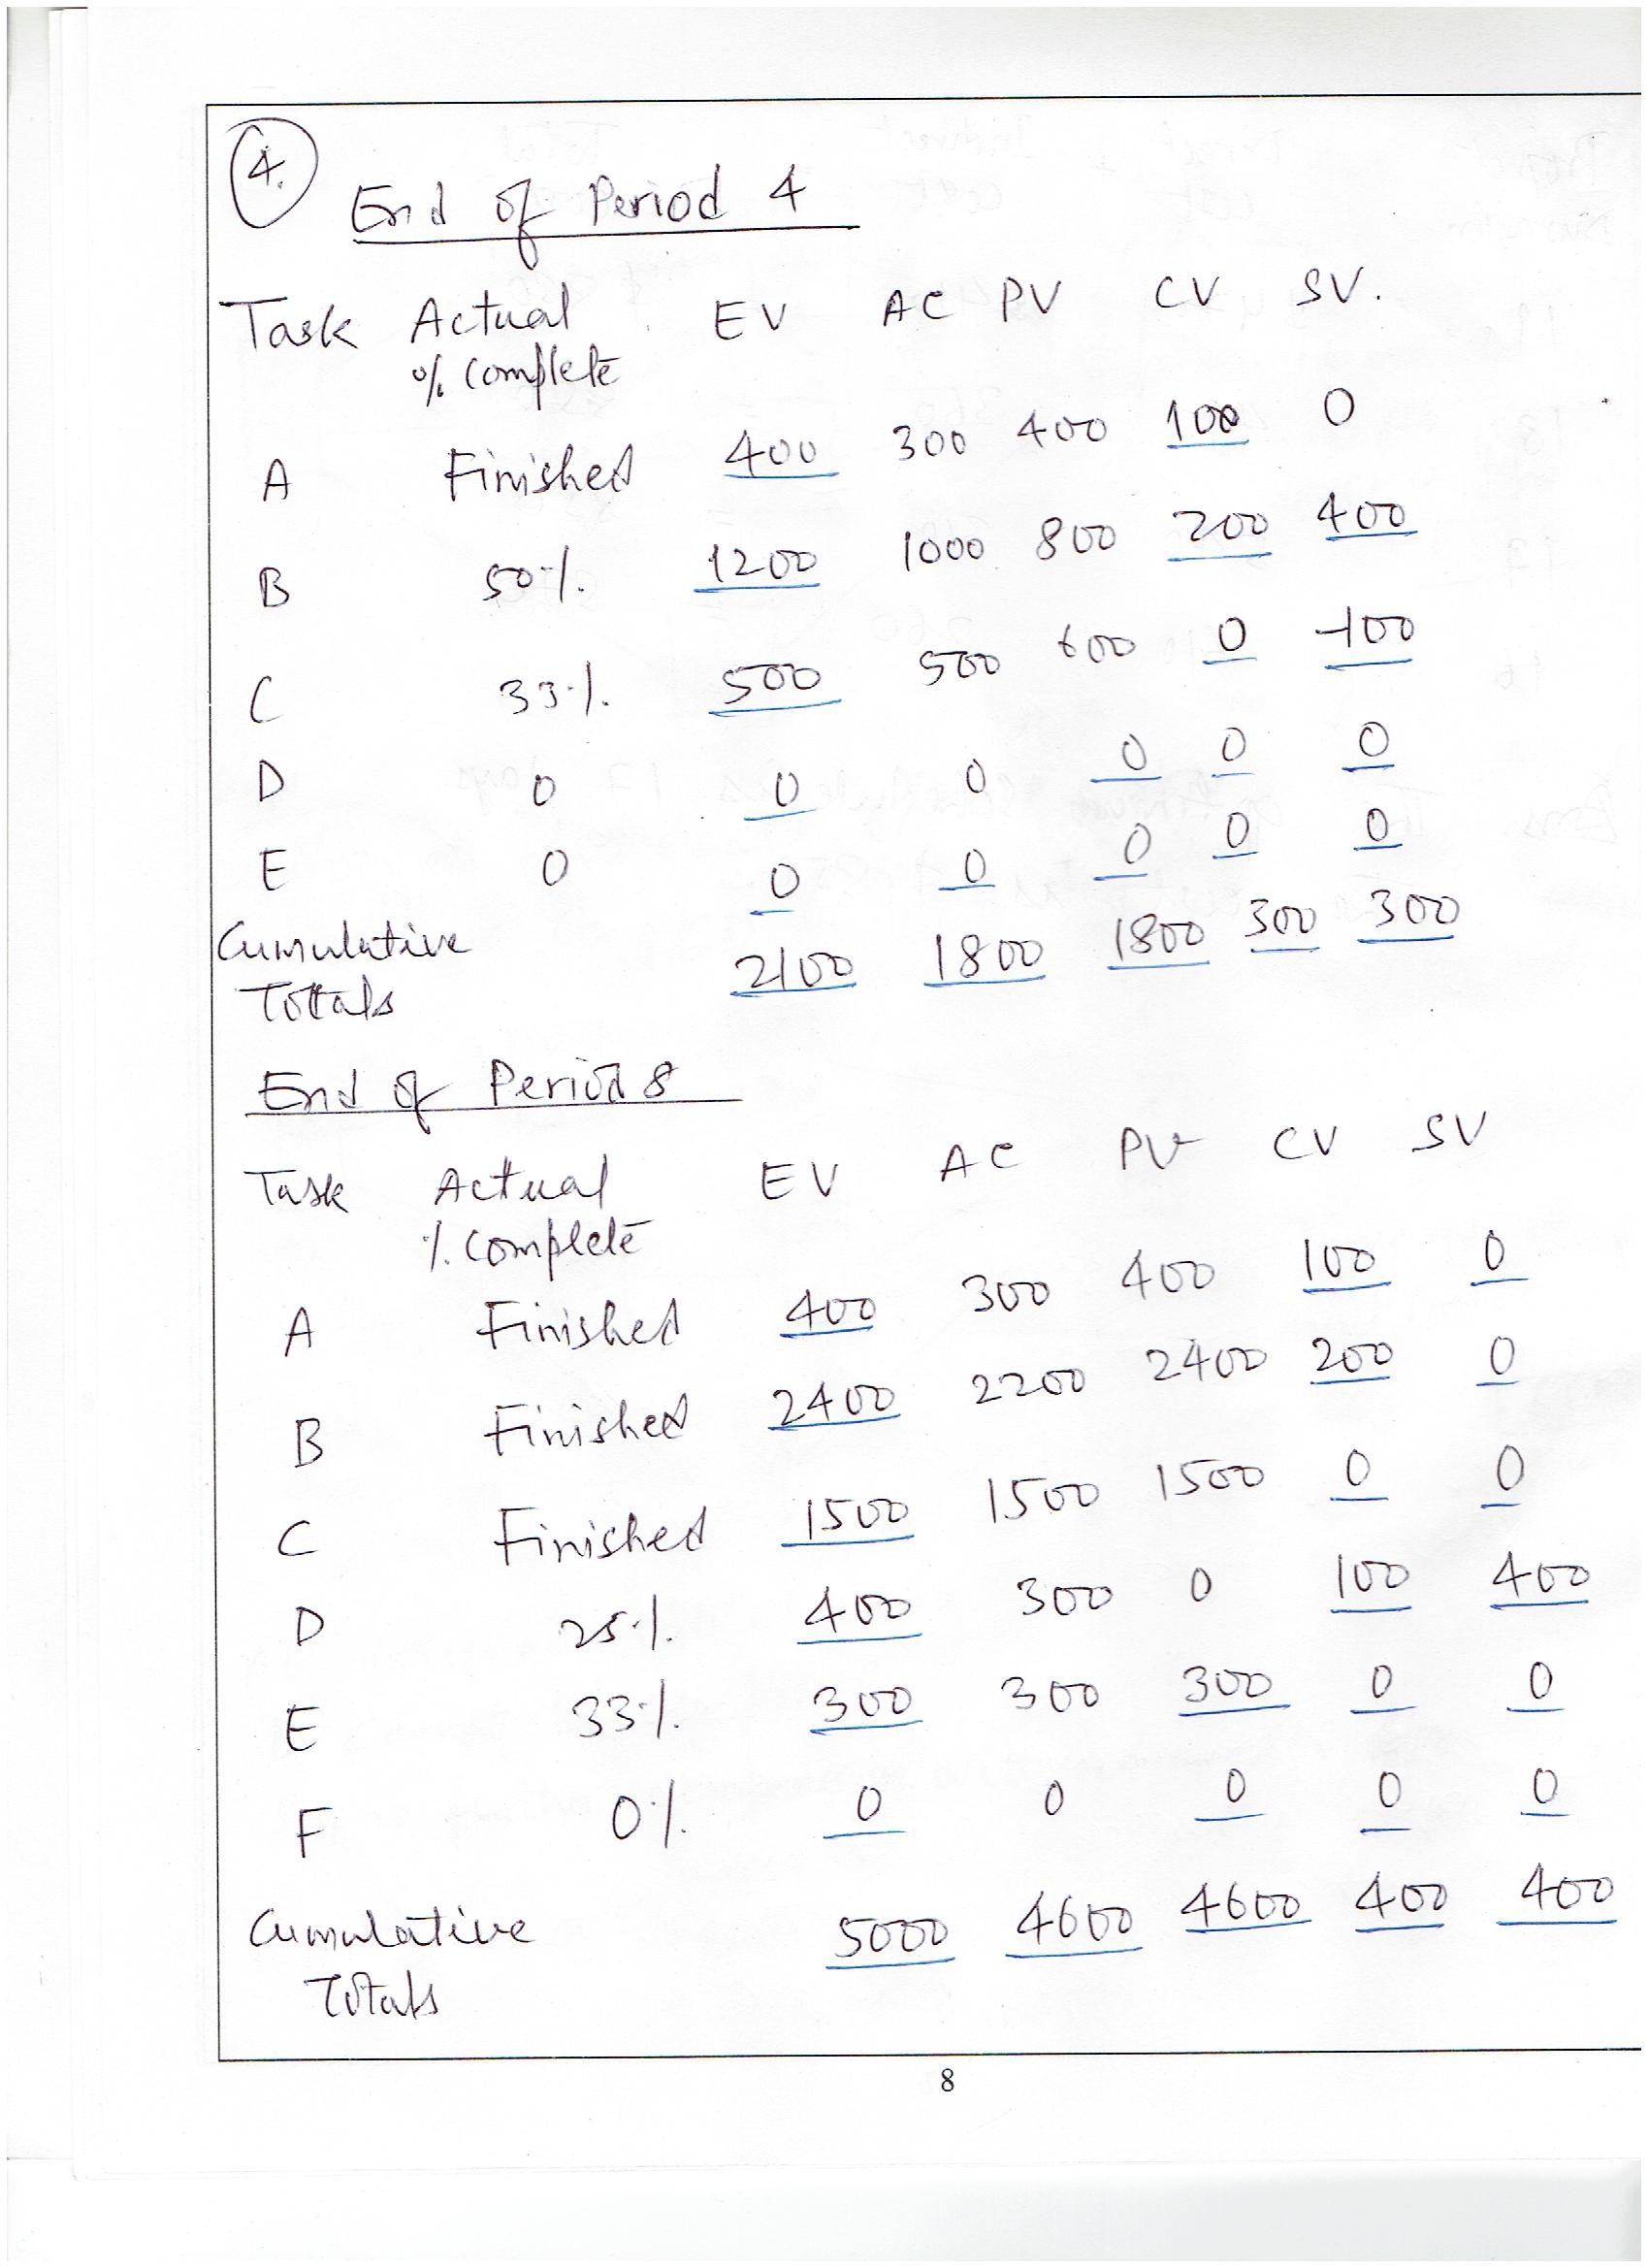 4.
End of Period 4
Task Actual % complete EV AC PV CV SV.
A Finished 400 300 400 100 0
B 50% 1200 1000 800 200 400
C 33% 500 500 600 0 -100
D 0 0 0 0 0 0
E 0 0 0 0 0 0
Cumulative Totals 2100 1800 1800 300 300
End of Period 8
Task Actual % complete EV AC PV CV SV
A Finished 400 300 400 100 0
B Finished 2400 2200 2400 200 0
C Finished 1500 1500 1500 0 0
D 25% 400 300 0 100 400
E 33% 300 300 300 0 0
F 0% 0 0 0 0 0
Cumulative Totals 5000 4600 4600 400 400
8